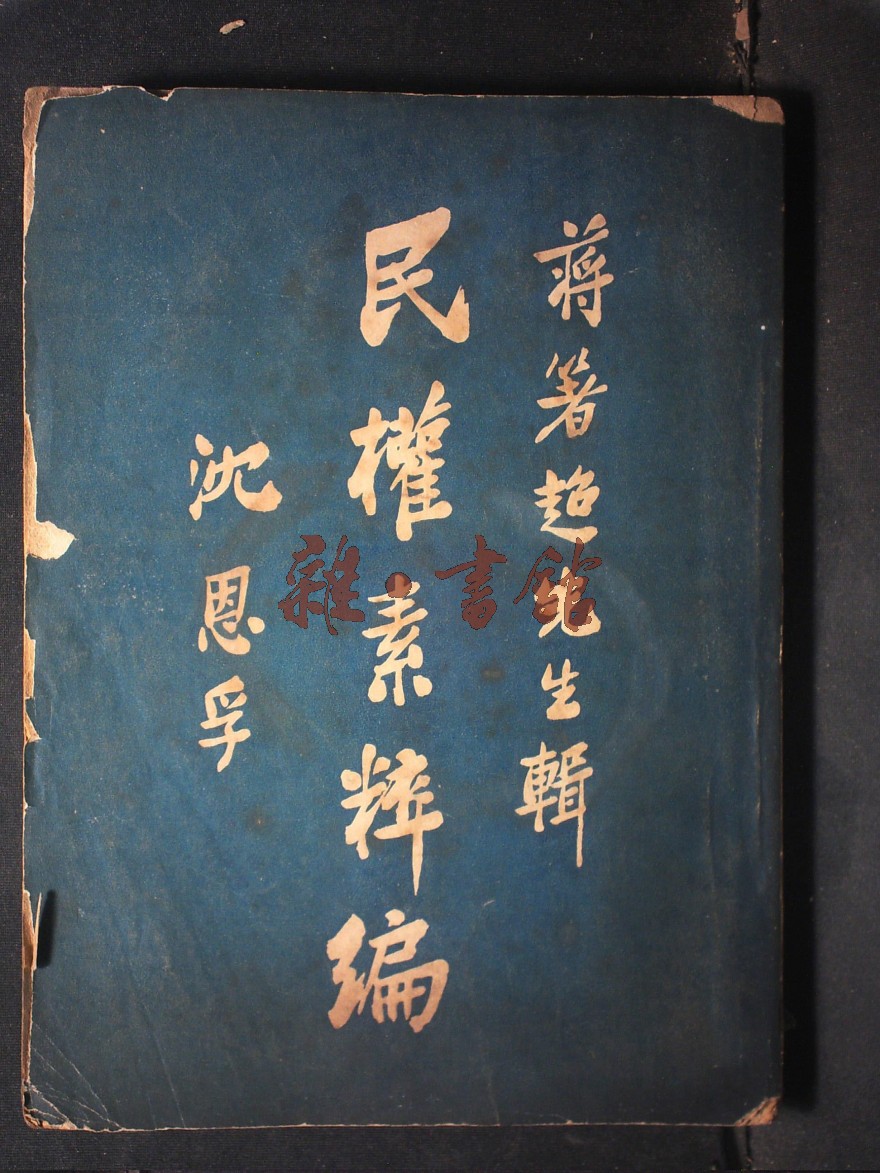 蔣箸超先生輯
民權素粹編
沈恩孚
雜·書館